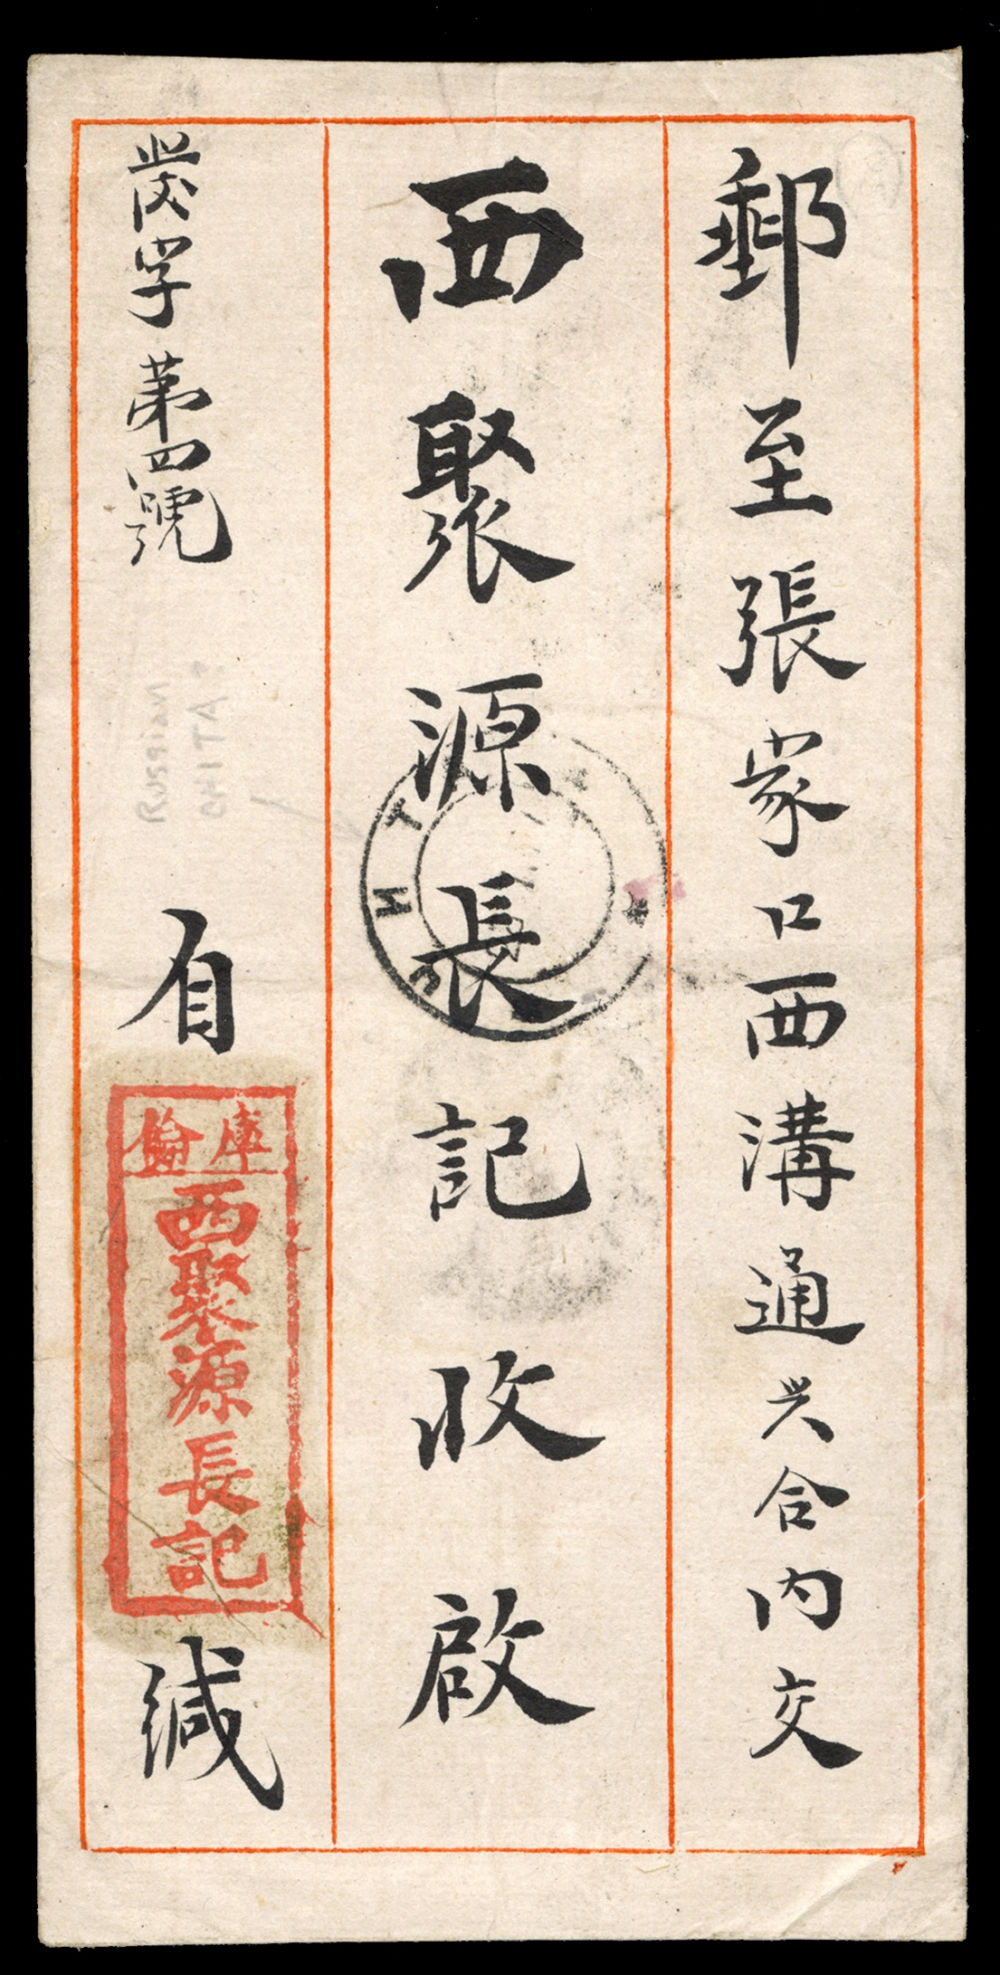 郵至張家口西溝通兴合内交
西聚源長記收啟
字第四號
自
庫倫
西聚源長記
緘
RUSSIAN
CHITA?